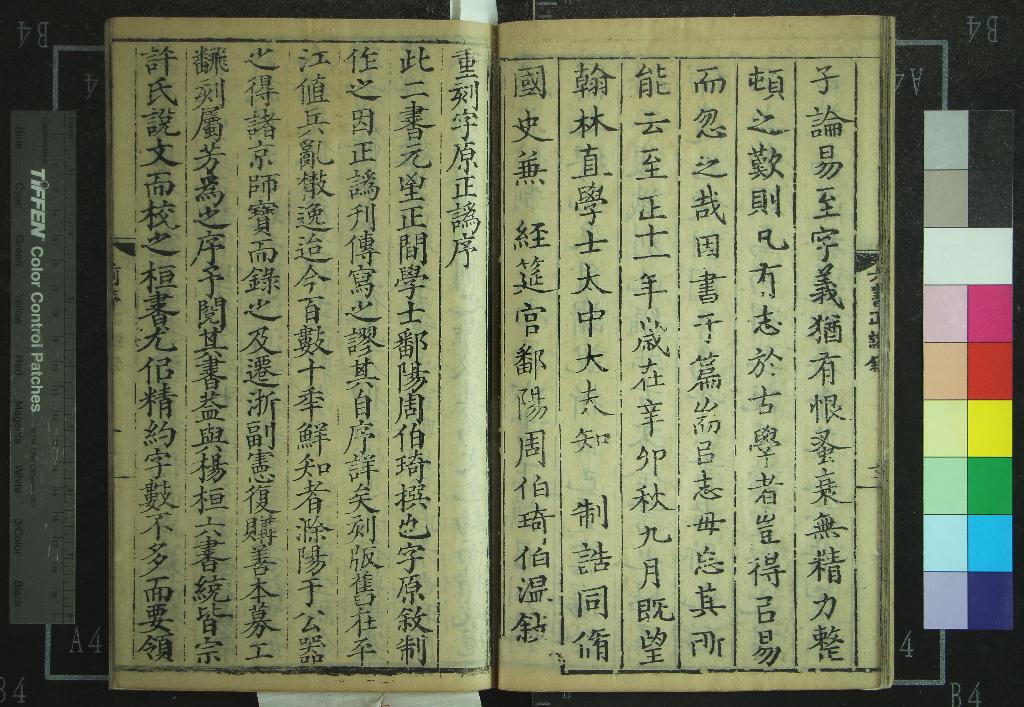 子論易至字義猶有恨蚤衰無精力整
頓之歎則凡有志於古學者豈得㠯易
而忽之哉因書于篇耑㠯志毋忘其所
能云至正十一年歲在辛卯秋九月既望
翰林直學士太中大夫知 制誥同脩
國史兼 經筵官鄱陽周伯琦伯溫敘
六書正譌敘
重刻字原正譌序
此二書元至正間學士鄱陽周伯琦撰也字原敘制
作之因正譌刋傳寫之謬其自序詳矣刻版舊在平
江値兵亂散逸迨今百數十季鮮知者滁陽于公器
之得諸京師寶而錄之及遷浙副憲復購善本募工
翻刻屬芳爲之序予閱其書葢與楊桓六書統皆宗
許氏說文而校之桓書尤侶精約字數不多而要領
TIFFEN Color Control Patches
Blue Cyan Green Yellow Red Magenta White 3/Color Black
B4
B4
A4
A4
A4
4
B4
B4